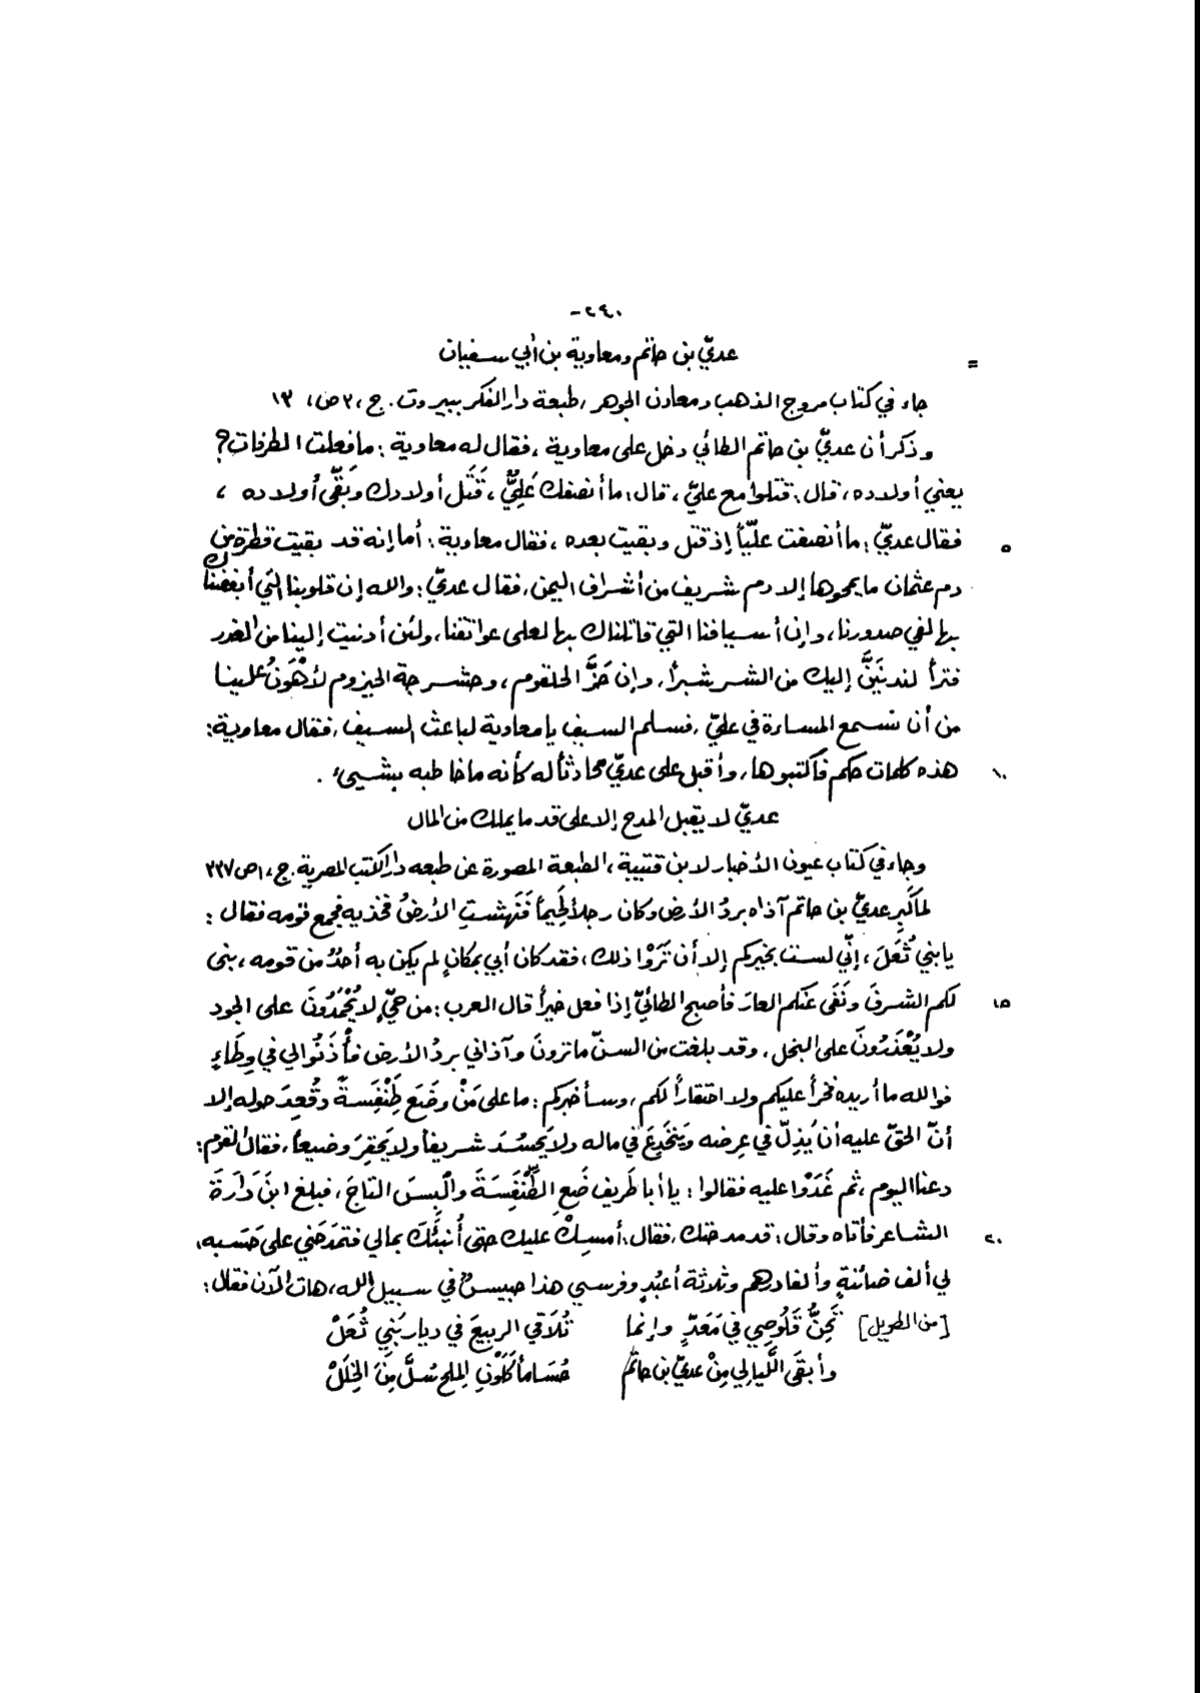 -٢٤٠-
عديّ بن حاتم ومعاوية بن أبي سفيان
=
جاء في كتاب مروج الذهب ومعادن الجوهر، طبعة دار الفكر ببيروت. ج، ٣ ص، ١٣
وذكر أن عديّ بن حاتم الطائي دخل على معاوية، فقال له معاوية: ما فعلت الطرفات؟
يعني أولاده، قال: قتلوا مع عليّ، قال: ما أنصفك عَلِيٌّ، قَتَل أولادك وبَقَّى أولاده،
فقال عديّ: ما أنصفت عليّاً إذ قتل وبقيت بعده، فقال معاوية: أما إنه قد بقيت قطرة من ٥
دم عثمان ما يمحوها إلا دم شريف من أشراف اليمن، فقال عديّ: والله إن قلوبنا التي أبغضناك
بها لفي صدورنا، وإن أسيافنا التي قاتلناك بها لعلى عواتقنا، ولئن أدنيت إلينا من الغدر
فتراً لندنيَنَّ إليك من الشر شبراً، وإن حَزَّ الحلقوم، وحشرجة الحيزوم لأهْوَنُ علينا
من أن نسمع المساءة في عليّ، فسلم السيف يا معاوية لباعث السيف، فقال معاوية:
هذه كلمات حكم فاكتبوها، وأقبل على عديّ محادثاً له كأنه ما خاطبه بشيء. ١٠
عديّ لا يقبل المدح إلا على قد ما يملك من المال
وجاء في كتاب عيون الأخبار لابن قتيبة، الطبعة المصورة عن طبعه دار الكتب المصرية. ج، ١ ص ٣٣٧
لما كَبِر عديّ بن حاتم آذاه بردُ الأرض وكان رجلاً لَحِيماً فَنَهشتِ الأرضُ فخذيه فجمع قومه فقال:
يا بني ثُعَلَ، إنّي لست بخيركم إلا أن تَرَوْا ذلك، فقد كان أبي بمكانٍ لم يكن به أحدٌ من قومه، بنى
لكم الشرفَ ونَفَى عنكم العارَ فأصبح الطائيّ إذا فعل خيراً قال العرب: من حيٍّ لا يُحْمَدُونَ على الجود ١٥
ولا يُعْذَرُونَ على البخل، وقد بلغت من السنّ ما ترونَ وآذاني بردُ الأرض فأْذَنُوا لي في وِطَاءٍ
فوالله ما أريده فخراً عليكم ولا احتقاراً لكم، وسأخبركم: ما على مَنْ وضَعَ طِنْفِسةً وقُعِدَ حوله إلا
أنّ الحقّ عليه أن يُذِلّ في عِرضه ويَنخَدِعَ في ماله ولا يَحسُدَ شريفاً ولا يَحقِرَ وضيعاً، فقال القوم:
دعنا اليوم، ثم غَدَوْا عليه فقالوا: يا أبا طَريف ضَعِ الطِّنْفِسَةَ والْبِسِ التاجَ، فبلغ ابنَ دَارَةَ
الشاعر فأتاه وقال: قد مدحتك، فقال: أمسِكْ عليك حتى أُنبِئَكَ بمالي فتمدَحَني على حَسَبه، ٢٠
لي ألف ضائنةٍ وألفا درهم وثلاثة أعبُدٍ وفرسي هذا حبيسٌ في سبيل الله، هات الآن فقال:
[من الطويل] تَحِنُّ قَلُوصِي في مَعَدّ وإنما تُلاَقي الربيعَ في ديار بَنِي ثُعَلْ
وأبقَى اللَّيالِي مِنْ عديّ بن حاتم حُسَاماً كَلَوْنِ المِلح سُلَّ مِنَ الخِلَلْ